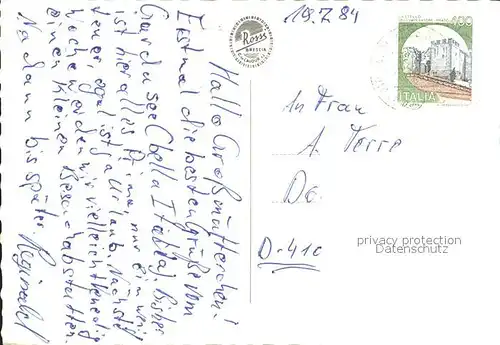 Hallo Großmütterchen!
Erstmal die besten Grüße vom
Gardasee (bella Italia). Bisher
ist hier alles Prima, nur ein weni
teuer egal ist ja Urlaub. Nächste
Woche werden wir vielleicht Venedig
einen kleinen Besuch abstatten.
Na dann bis später
Rossi
BRESCIA
19.7.84
400
ITALIA
An Frau
A. Terre
De
D-410
privacy protection
Datenschutz